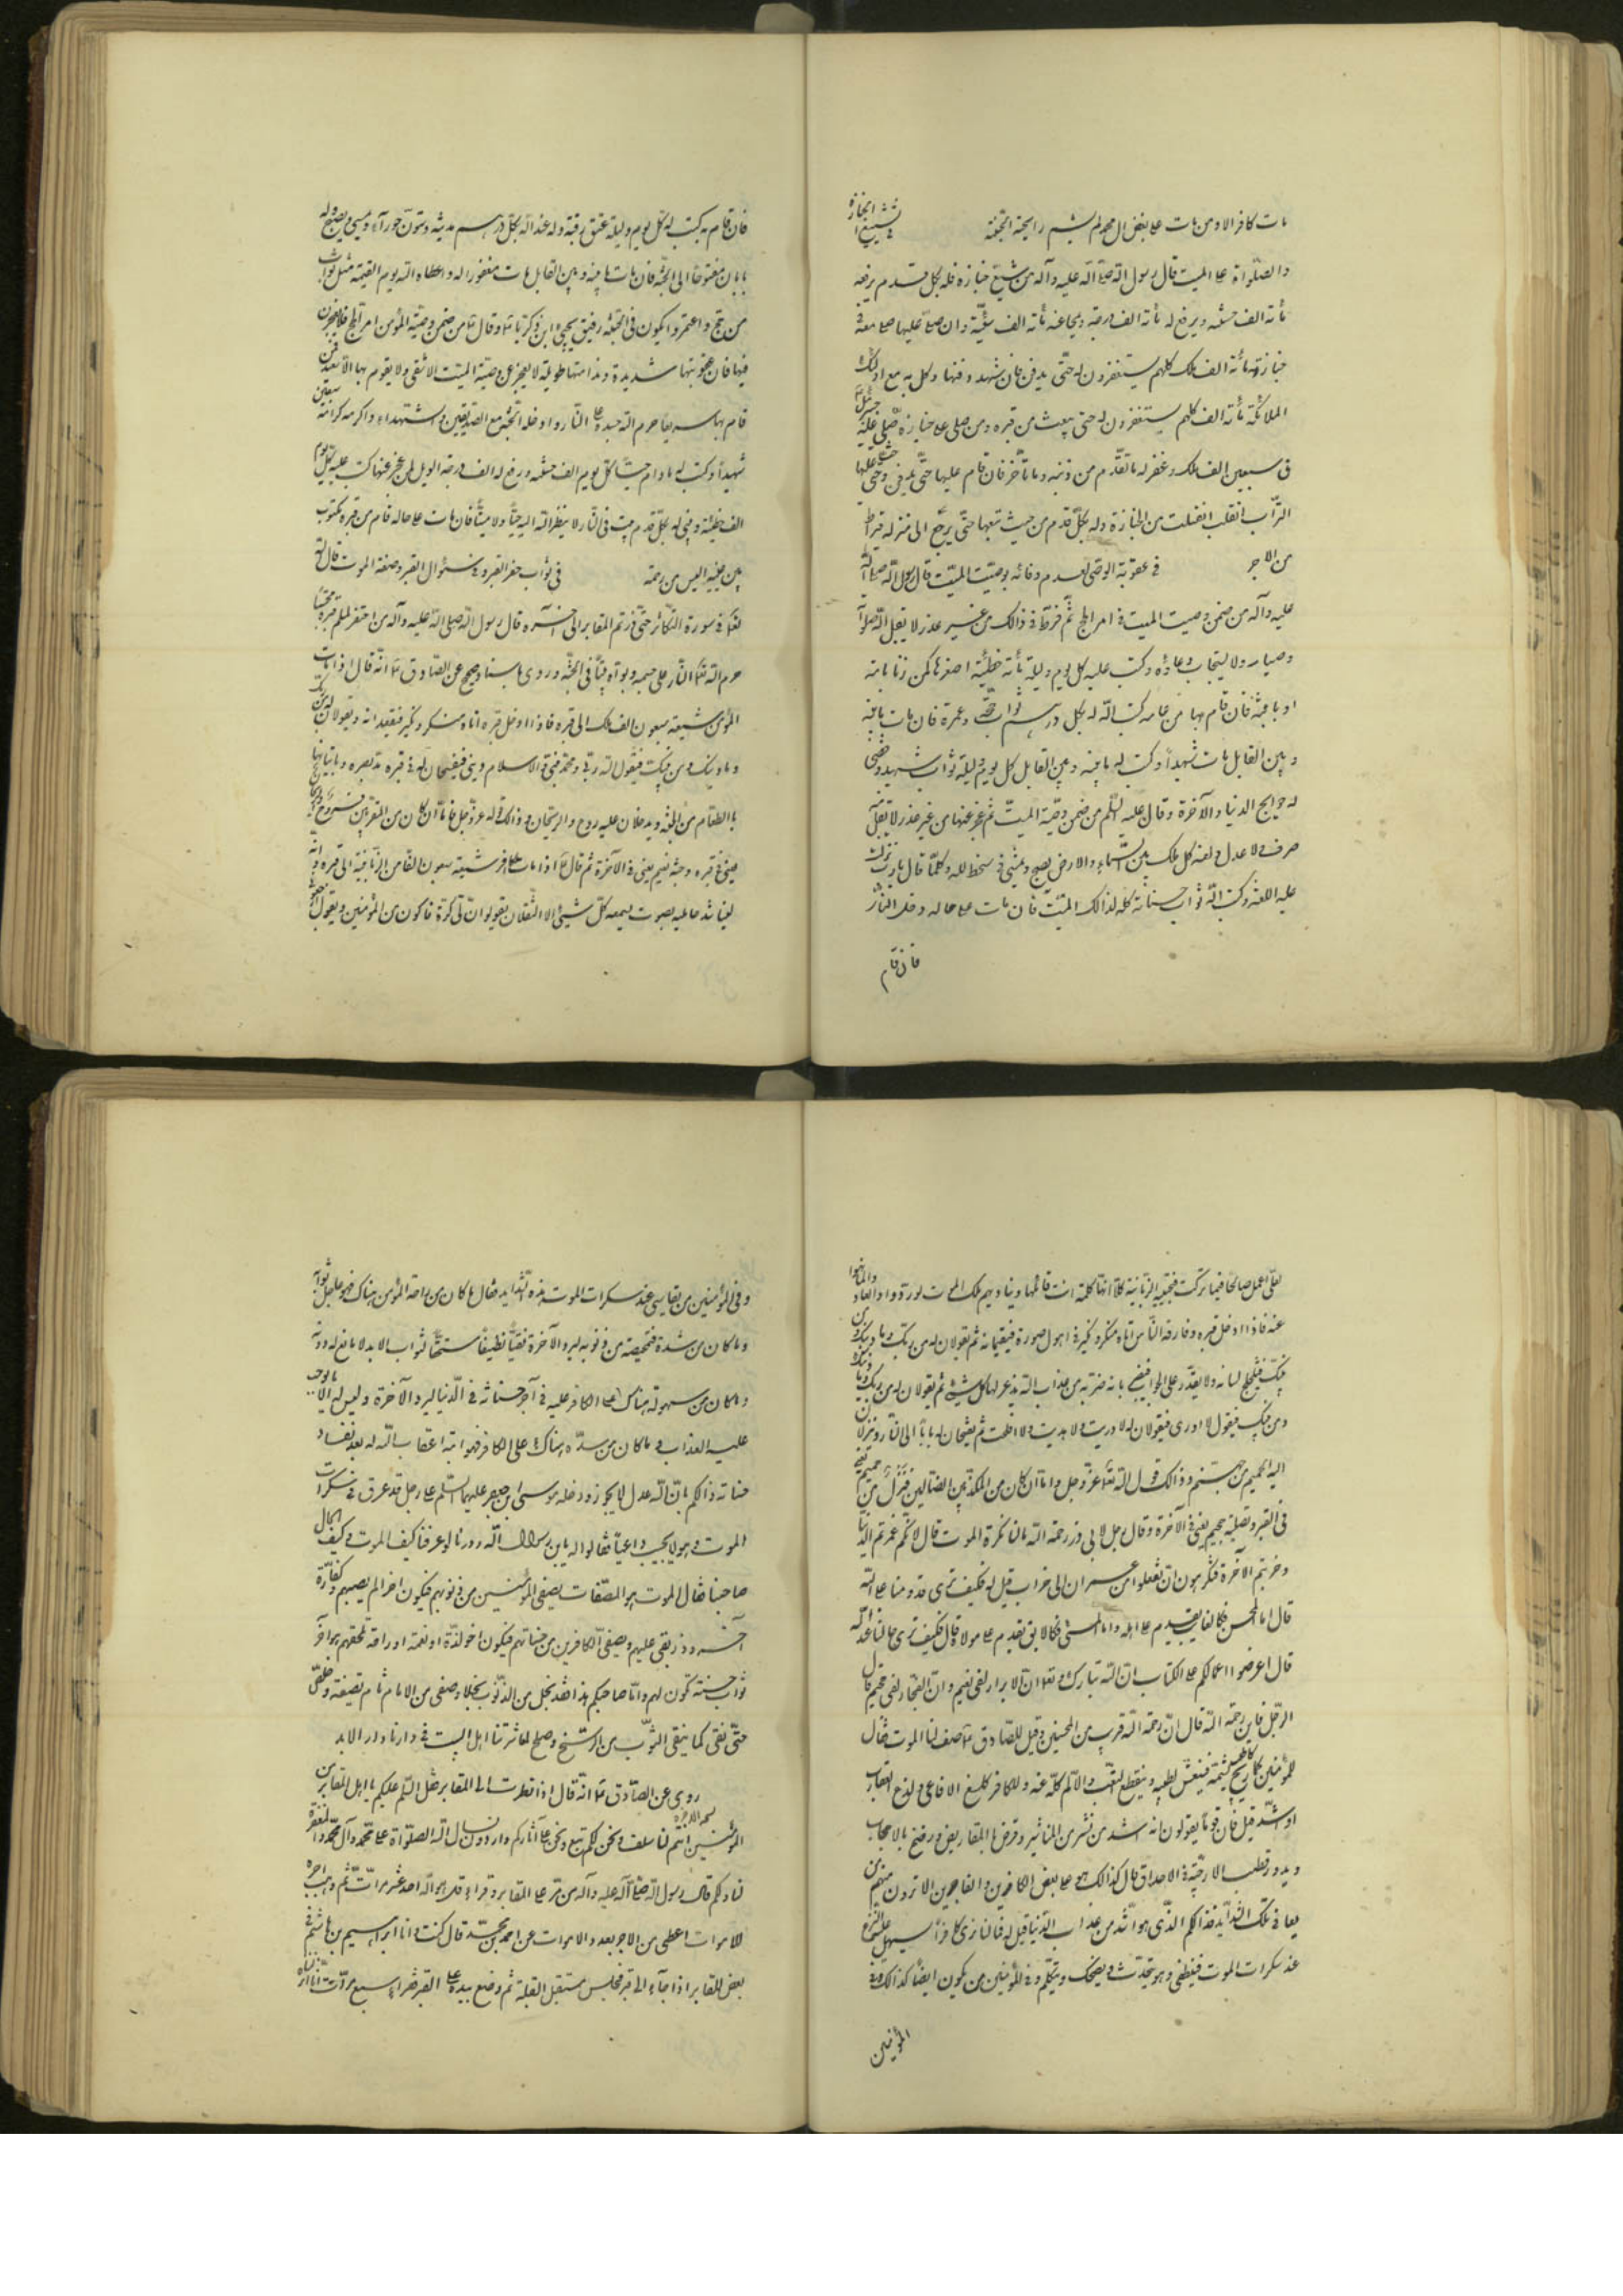 مات كافرا الا ومن مات على بغض آل محمد لم يشم رايحة الجنة في تشييع الجنازة
والصلواة على الميت قال رسول الله صلى الله عليه وآله من شيع جنازة فله بكل قدم يرفعه
مأته الف حسنه ويرفع له مأته الف درجه ويمحا عنه مأته الف سيئة وان صلى عليها صلى معه في
جنازته مأته الف ملك كلهم يستغفرون له حتى يدفن فان شهد دفنها وكل به مع اولئك
الملائكة مأته الف كلهم يستغفرون له حتى يبعث من قبره ومن صلى على جنازة صلى عليه جبرئيل
في سبعين الف ملك وغفر له ما تقدم من ذنبه وما تأخر فان قام عليها حتى يدفن وحثى عليها
التراب انقلب من الجنازة وله بكل قدم من حيث تبعها حتى يرجع الى منزله قيراط
من الاجر في عقوبة الوصى لعدم وفائه بوصيت الميت قال رسول الله صلى الله
عليه وآله من ضمن وصيت الميت في امر الحج ثم فرط في ذالك من غير عذر لا يقبل الله صلوته
وصيامه ولا يستجاب دعاؤه وكتب عليه كل يوم وليلة مأته خطيئة اصغرها كمن زنا بامه
او بابنته فان قام بها من عامه كتب الله له بكل درهم ثواب حجة وعمرة فان مات ما بينه
وبين القابل مات شهيدا وكتب له ما بينه وبين القابل كل يوم وليلة ثواب شهيد وقضى
له حوايج الدنيا والآخرة وقال عليه السلم من ضمن وصية الميت ثم عجز عنها من غير عذر لا يقبل منه
صرف ولا عدل ولعنه كل ملك بين السماء والارض يصبح ويمسى في سخط الله وكلما قال يا رب نزلت
عليه اللعنه وكتب الله ثواب حسناته كله لذالك الميت فان مات على حاله دخل النار
فان قام
فان قام به كتب له كل يوم وليلة عتق رقبة وله عند الله بكل درهم مدينه وستون حوراء ويمسى ويصبح وله
بابان مفتوحا الى الجنة فان مات ما بينه وبين القابل مات مغفورا له واعطاه الله يوم القيمة مثل ثواب
من حج واعتمر ويكون في الجنة رفيق يحيى ابن زكريا وقال من ضمن وصية المؤمن امر الحج فلا يعجزن
فيها فان عقوبتها شديدة وندامتها طويلة لا يعجز عن وصية الميت الا شقى ولا يقوم بها الا سعيد فمن
قام بها سريعا حرم الله جسده على النار وادخله الجنة مع الصديقين والشهداء واكرمه كرامة سبعين
شهيدا وكتب له ما دام حيا كل يوم الف حسنه ورفع له الف درجه الويل لمن عجز عنها كتب عليه بكل يوم
الف خطيئة وبنى له بكل قدم بيت في النار لا ينظر الله اليه حيا ولا ميتا فان مات على حاله قام من قبره مكتوب
بين عينيه آيس من رحمة في ثواب حفر القبر وفي سئوال القبر وصفة الموت قال الله
تعالى في سورة التكاثر حتى زرتم المقابر الى اخره قال رسول الله صلى الله عليه وآله من احتفر لمسلم قبرا محتسبا
حرم الله تعالى النار على جسمه وبوأه بيتا في الجنة وروى باسناد صحيح عن الصادق انه قال اذا مات
المؤمن شيعه سبعون الف ملك الى قبره فاذا ادخل قبره اتاه منكر ونكير فيقعدانه ويقولان له من ربك
وما دينك ومن نبيك فيقول الله ربى ومحمد نبيى والاسلام دينى فيفسحان له في قبره مد بصره ويأتيانه
بالطعام من الجنة ويدخلان عليه روح والريحان وذالك قوله عز وجل فاما ان كان من المقربين فروح وريحان
يعنى في قبره وجنة نعيم يعنى في الآخرة ثم قال اذا مات الكافر شيعه سبعون الفا من الزبانية الى قبره وانه
ليناشد حامليه بصوت يسمعه كل شيئ الا الثقلان يقول لو ان لى كرة فاكون من المؤمنين ويقول ارجعون
لعلى اعمل صالحا فيما تركت فتجيبه الزبانية كلا انها كلمة انت قائلها ويناديهم ملك الموت لو ردوا لعادوا لما نهوا
عنه فاذا ادخل قبره وفارقه الناس اتاه منكر ونكير في اهول صورة فيقيمانه ثم يقولان له من ربك وما دينك ومن
نبيك فيتلجلج لسانه ولا يقدر على الجواب فيضربانه ضربة من عذاب الله يذعر لها كل شيئ ثم يقولان له من ربك وما دينك
ومن نبيك فيقول لا ادرى فيقولان له لا دريت ولا هديت ولا افلحت ثم يفتحان له بابا الى النار وينزلان
اليه الحميم من جهنم وذالك قول الله تعالى عز وجل واما ان كان من المكذبين الضالين فنزل من حميم يعنى
في القبر وتصلية جحيم يعنى في الآخرة وقال رجل لابى ذر رحمة الله مالنا نكره الموت قال لانكم عمرتم الدنيا
وخربتم الآخرة فتكرهون ان تنقلوا من عمران الى خراب قيل له فكيف ترى قدومنا على الله
قال اما المحسن فكالغايب يقدم على اهله واما المسئى فكالابق يقدم على مولاه قال فكيف ترى حالنا عند الله
قال اعرضوا اعمالكم على الكتاب ان الله تبارك وتعالى ان الابرار لفى نعيم وان الفجار لفى جحيم قال
الرجل فاين رحمة الله قال ان رحمة الله قريب من المحسنين وقيل للصادق صف لنا الموت فقال
للمؤمنين كاطيب ريح يشمه فينعش لطيبه وينقطع التعب والالم كله عنه وللكافر كلسع الافاعى ولدغ العقارب
او اشد قيل فان قوما يقولون انه اشد من نشر من المناشير وقرض بالمقاريض ورضخ بالاحجار
وتدوير قطب الارحية في الاحداق قال كذالك هو على بعض الكافرين والفاجرين الا ترون منهم من
يعاين تلك الشدايد فذالكم الذى هو اشد من عذاب الدنيا قيل له فمالنا نرى كافرا سيهل عليه النزع
عند سكرات الموت فينطفى وهو يتحدث ويضحك ويتكلم وفى المؤمنين من يكون ايضا كذالك وفى
المؤمنين
وفى المؤمنين من يقاسى عند سكرات الموت هذه الشدايد فقال ما كان من راحة المؤمن هناك فهو عاجل ثوابه
وما كان من شدة فتمحيصه من ذنوبه ليرد الآخرة نقيا نظيفا مستحقا لثواب الابد لا مانع له دونه
وما كان من سهولة هناك على الكافر فليوفى اجر حسناته في الدنيا ليرد الآخرة وليس له الا ما يوجب
عليه العذاب وما كان من شده هناك على الكافر فهو ابتداء عقاب الله له بعد نفاد
حسناته ذالكم بان الله عدل لا يجوز ودخله موسى ابن جعفر عليهما السلم على رجل قد عرق في سكرات
الموت وهو لا يجيب داعيا فقالوا له يابن رسول الله وددنا لو عرفنا كيف الموت وكيف الحال
صاحبنا فقال الموت هو الصفات يصفى المؤمنين من ذنوبهم فيكون اخر الم يصيبهم وكفارة
آخر وزر بقى عليهم ويصفى الكافرين من حسناتهم فيكون اخر لذة او نعمة او راحة تلحقهم هو اخر
ثواب حسنه تكون لهم واما صاحبكم هذا فقد نخل من الذنوب نخلا وصفى من الاثام تصفية وخلص
حتى نقى كما ينقى الثوب من الوسخ وصلح لمعاشرتنا اهل البيت في دارنا دار الابد
روى عن الصادق انه قال اذا نظرت الى المقابر فقل السلم عليكم يا اهل المقابر من
المؤمنين انتم لنا سلف ونحن لكم تبع ونحن على آثاركم واردون نسأل الله الصلواة على محمد وآل محمد والمغفرة
لنا ولكم قال رسول الله صلى الله عليه وآله من مر على المقابر وقراء قل هو الله احد عشر مرات ثم وهب اجره
للاموات اعطى من الاجر بعدد الاموات عن احمد بن محمد قال كنت وانا ابراهيم بن هاشم في
بعض المقابر اذا جآء الى قبر فجلس مستقبل القبلة ثم وضع يده على القبر فقراء سبع مرات انا انزلناه